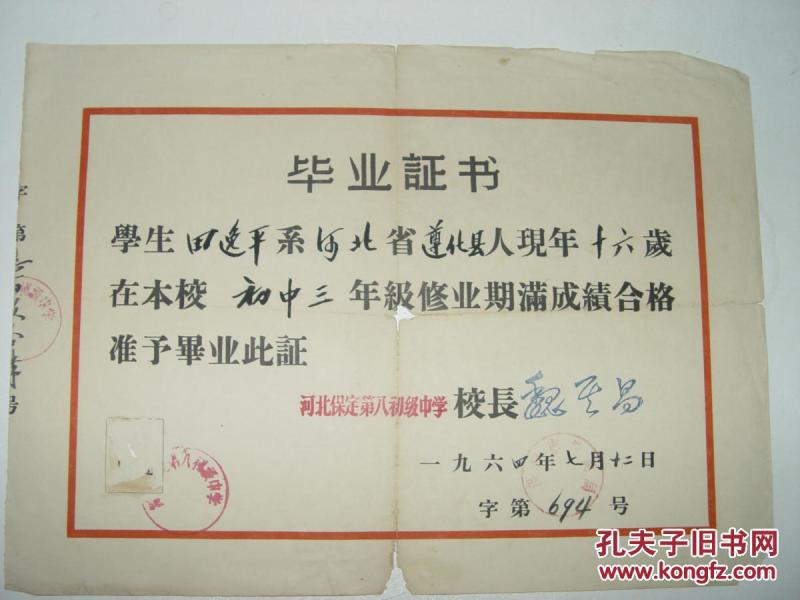 毕业証书
學生 田逸平 系 河北 省 遵化县 人現年 十六 歲
在本校 初中三 年級修业期滿成績合格
准予畢业此証
河北保定第八初级中学 校長
一九六四年七月十二日
字第 694 号
字第
号
孔夫子旧书网
www.kongfz.com